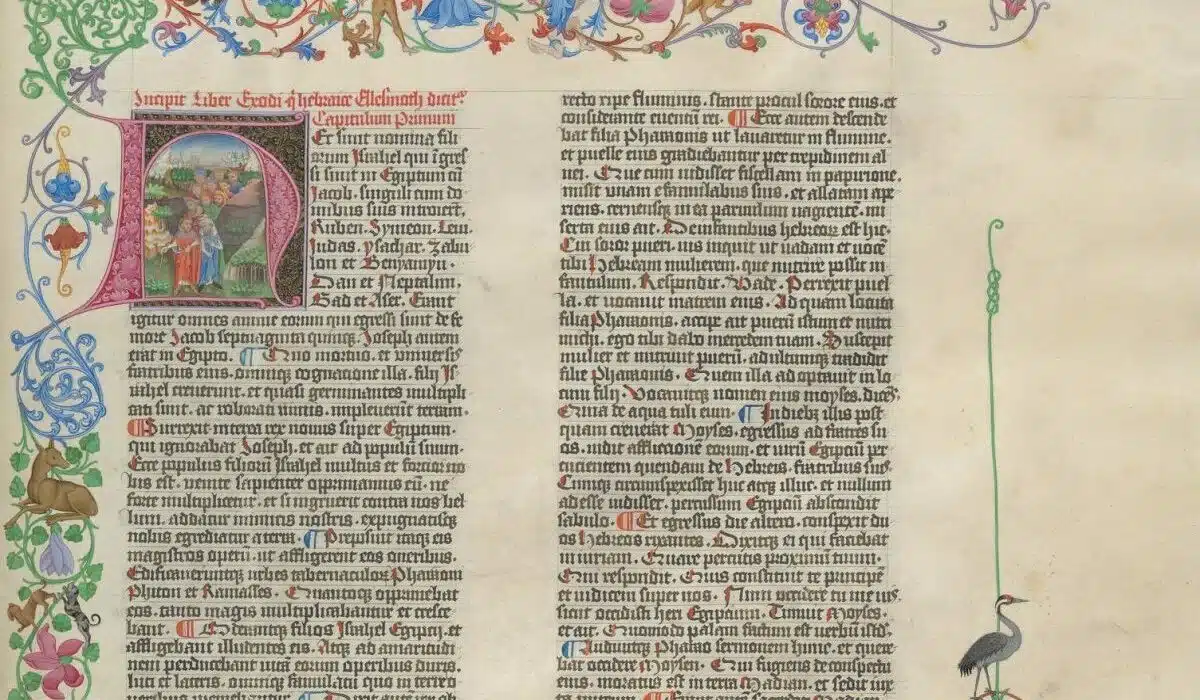 Incipit Liber Exodi q̄ hebraice Elesmoth dicit᷑
Capitulum Primum
Et sunt nomina fili
orum Israhel qui īgres
si sunt in Egiptum cū
Jacob. singuli cum do
mibus suis introierūt.
Ruben. Symeon. Leui
Judas. ysachar. Zabu
lon et Benyamyn.
Dan et Neptalim.
Gad et Aser. Erant
igitur omnes anime eorum qui egressi sunt de fe
more Jacob septuaginta quinqꝫ. Joseph autem
erat in Egipto. ¶ Quo mortuo. et uniuersis
fratribus eius. omniqꝫ cognatione illa. filij Is
rahel creuerunt. et quasi germinantes multipli
cati sunt. ac roborati nimis. impleuerūt terram.
¶ Surrexit interea rex nouus super Egiptum.
qui ignorabat Joseph. et ait ad populū suum.
Ecce populus filiorū Israhel multus et fortior no
bis est. uenite sapienter opprimamus eū. ne
forte multiplicetur. et si ingruerit contra nos bel
lum. addatur inimicis nostris. expugnatisqꝫ
nobis egrediatur a terra. ¶ Preposuit itaqꝫ eis
magistros operū. ut affligerent eos oneribus.
Edificaueruntqꝫ urbes tabernaculoꝝ Pharaoni
Phiton et Ramasses. Quantoqꝫ opprimebat
eos. tanto magis multiplicabantur et cresce
bant. ¶ Oderuntqꝫ filios Israhel Egiptij. et
affligebant illudentes eis. Atqꝫ ad amaritudi
nem perducebant uitā eorum operibus duris.
luti et lateris. omniqꝫ famulatu quo in terre o
recto ripe fluminis. stante procul sorore eius. et
considerante euentū rei. ¶ Ecce autem descende
bat filia Pharaonis ut lauaretur in flumine.
et puelle eius gradiebantur per crepidinem al
uei. Que cum uidisset fiscellam in papirione.
misit unam e famulabus suis. et allatam ape
riens. cernensqꝫ in ea paruulum uagientē. mi
serta eius ait. De infantibus hebreoꝝ est hic.
Cui soror pueri. uis inquit ut uadam et uocē
tibi Hebream mulierem. que nutrire possit in
fantulum. Respondit. Vade. Perrexit puel
la. et uocauit matrem eius. Ad quam locuta
filia Pharaonis. accipe ait puerū istum et nutri
michi. ego tibi dabo mercedem tuam. Suscepit
mulier et nutriuit puerū. adultumqꝫ tradidit
filie Pharaonis. Quem illa adoptauit in lo
cum filij. Vocauitqꝫ nomen eius moyses. dicēs.
Quia de aqua tuli eum. ¶ In diebꝫ illis post
quam creuerat Moyses. egressus ad fratres su
os. uidit afflictionē eorum. et uirū Egiptiū per
cucientem quendam de Hebreis. fratribus suis.
Cumqꝫ circumspexisset huc atqꝫ illuc. et nullum
adesse uidisset. percussum Egiptiū abscondit
sabulo. ¶ Et egressus die altero. conspexit du
os Hebreos rixantes. Dixitqꝫ ei qui faciebat
iniuriam. Quare percutis proximū tuum.
Qui respondit. Quis constituit te principē
et iudicem super nos. Num occidere tu me uis.
sicut occidisti heri Egiptium. Timuit Moyses.
et ait. Quomodo palam factum est uerbū istd.
¶ Audiuitqꝫ Pharao sermonem hunc. et quere
bat occidere Moysen. Qui fugiens de conspectu
eius. moratus est in terra Madian. et sedit iux